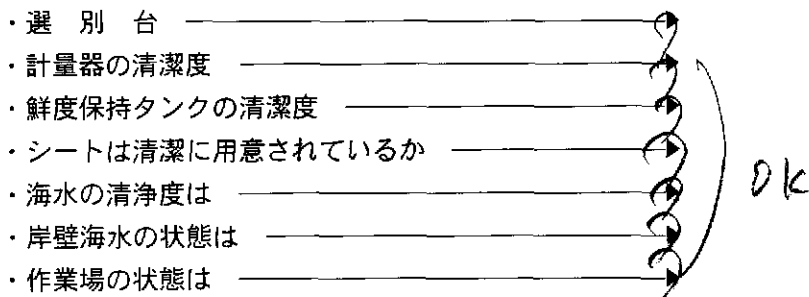 ・選　別　台
・計量器の清潔度
・鮮度保持タンクの清潔度
・シートは清潔に用意されているか
・海水の清浄度は
OK
・岸壁海水の状態は
・作業場の状態は